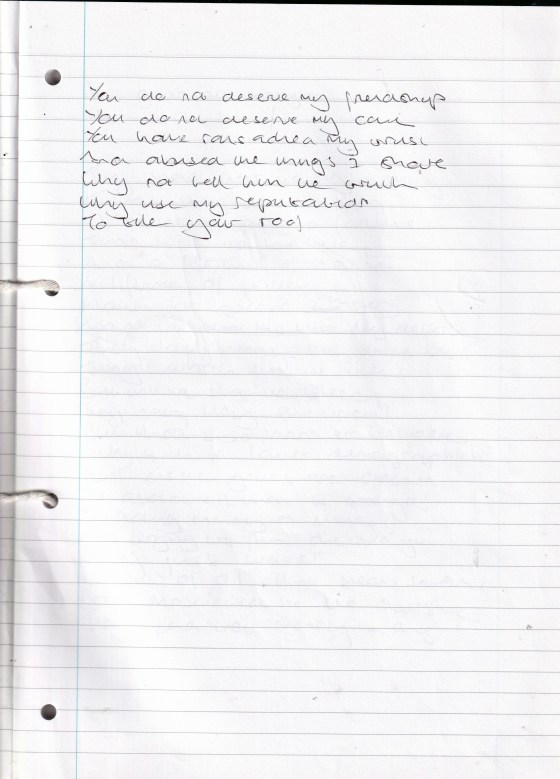 You do not deserve my friendship
You do not deserve my care
You have ransacked my trust
And abused the things I share
Why not tell him the truth
Why use my reputation
To tile your roof